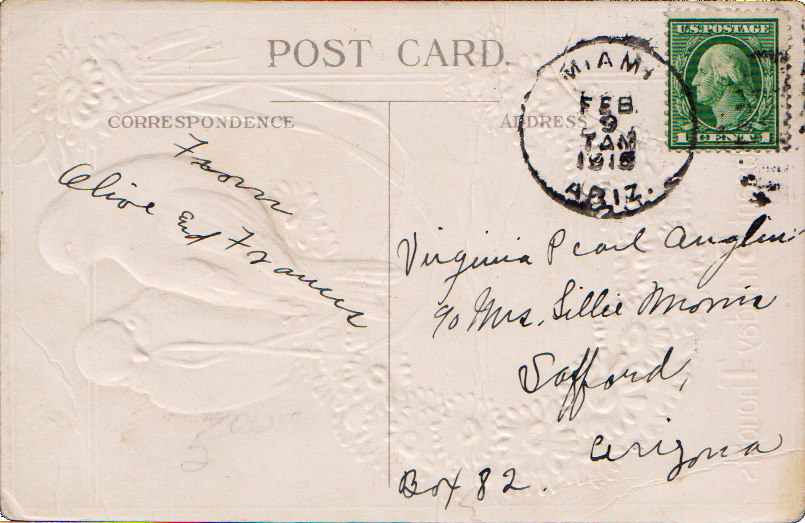 POST CARD.
CORRESPONDENCE
ADDRESS
U.S. POSTAGE
CENTS
MIAMI
FEB
9
7 AM
ARIZ.
From
Olive and Frances
Virginia Pearl Anglin
℅ Mrs. Lillie Morris
Safford,
Arizona
Box 82.
500